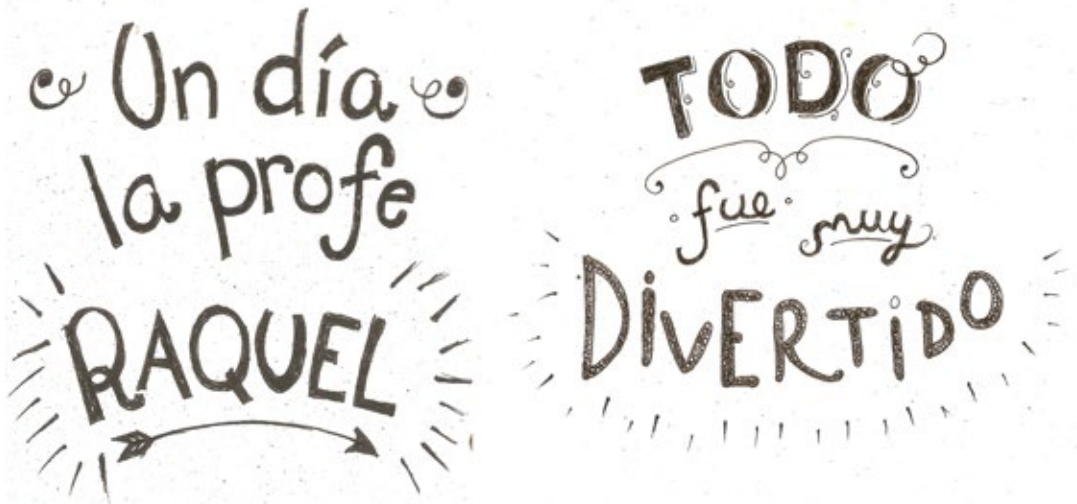 Un día
la profe
RAQUEL
TODO
fue muy
DiVERTiDO